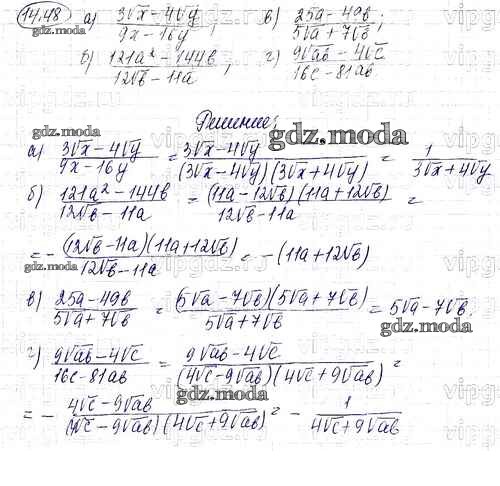 14.48 а) 3√x - 4√y / 9x - 16y ; в) 25a - 49b / 5√a + 7√b ;
б) 121a² - 144b / 12√b - 11a ; г) 9√ab - 4√c / 16c - 81ab
gdz.moda
gdz.moda
gdz.moda
Решение:
gdz.moda
gdz.moda
а) 3√x - 4√y / 9x - 16y = 3√x - 4√y / (3√x - 4√y)(3√x + 4√y) = 1 / 3√x + 4√y
б) 121a² - 144b / 12√b - 11a = (11a - 12√b)(11a + 12√b) / 12√b - 11a =
= - (12√b - 11a)(11a + 12√b) / 12√b - 11a = -(11a + 12√b)
gdz.moda
в) 25a - 49b / 5√a + 7√b = (5√a - 7√b)(5√a + 7√b) / 5√a + 7√b = 5√a - 7√b.
gdz.moda
г) 9√ab - 4√c / 16c - 81ab = 9√ab - 4√c / (4√c - 9√ab)(4√c + 9√ab) =
gdz.moda
= - 4√c - 9√ab / (4√c - 9√ab)(4√c + 9√ab) = - 1 / 4√c + 9√ab
gdz.moda
gdz.moda